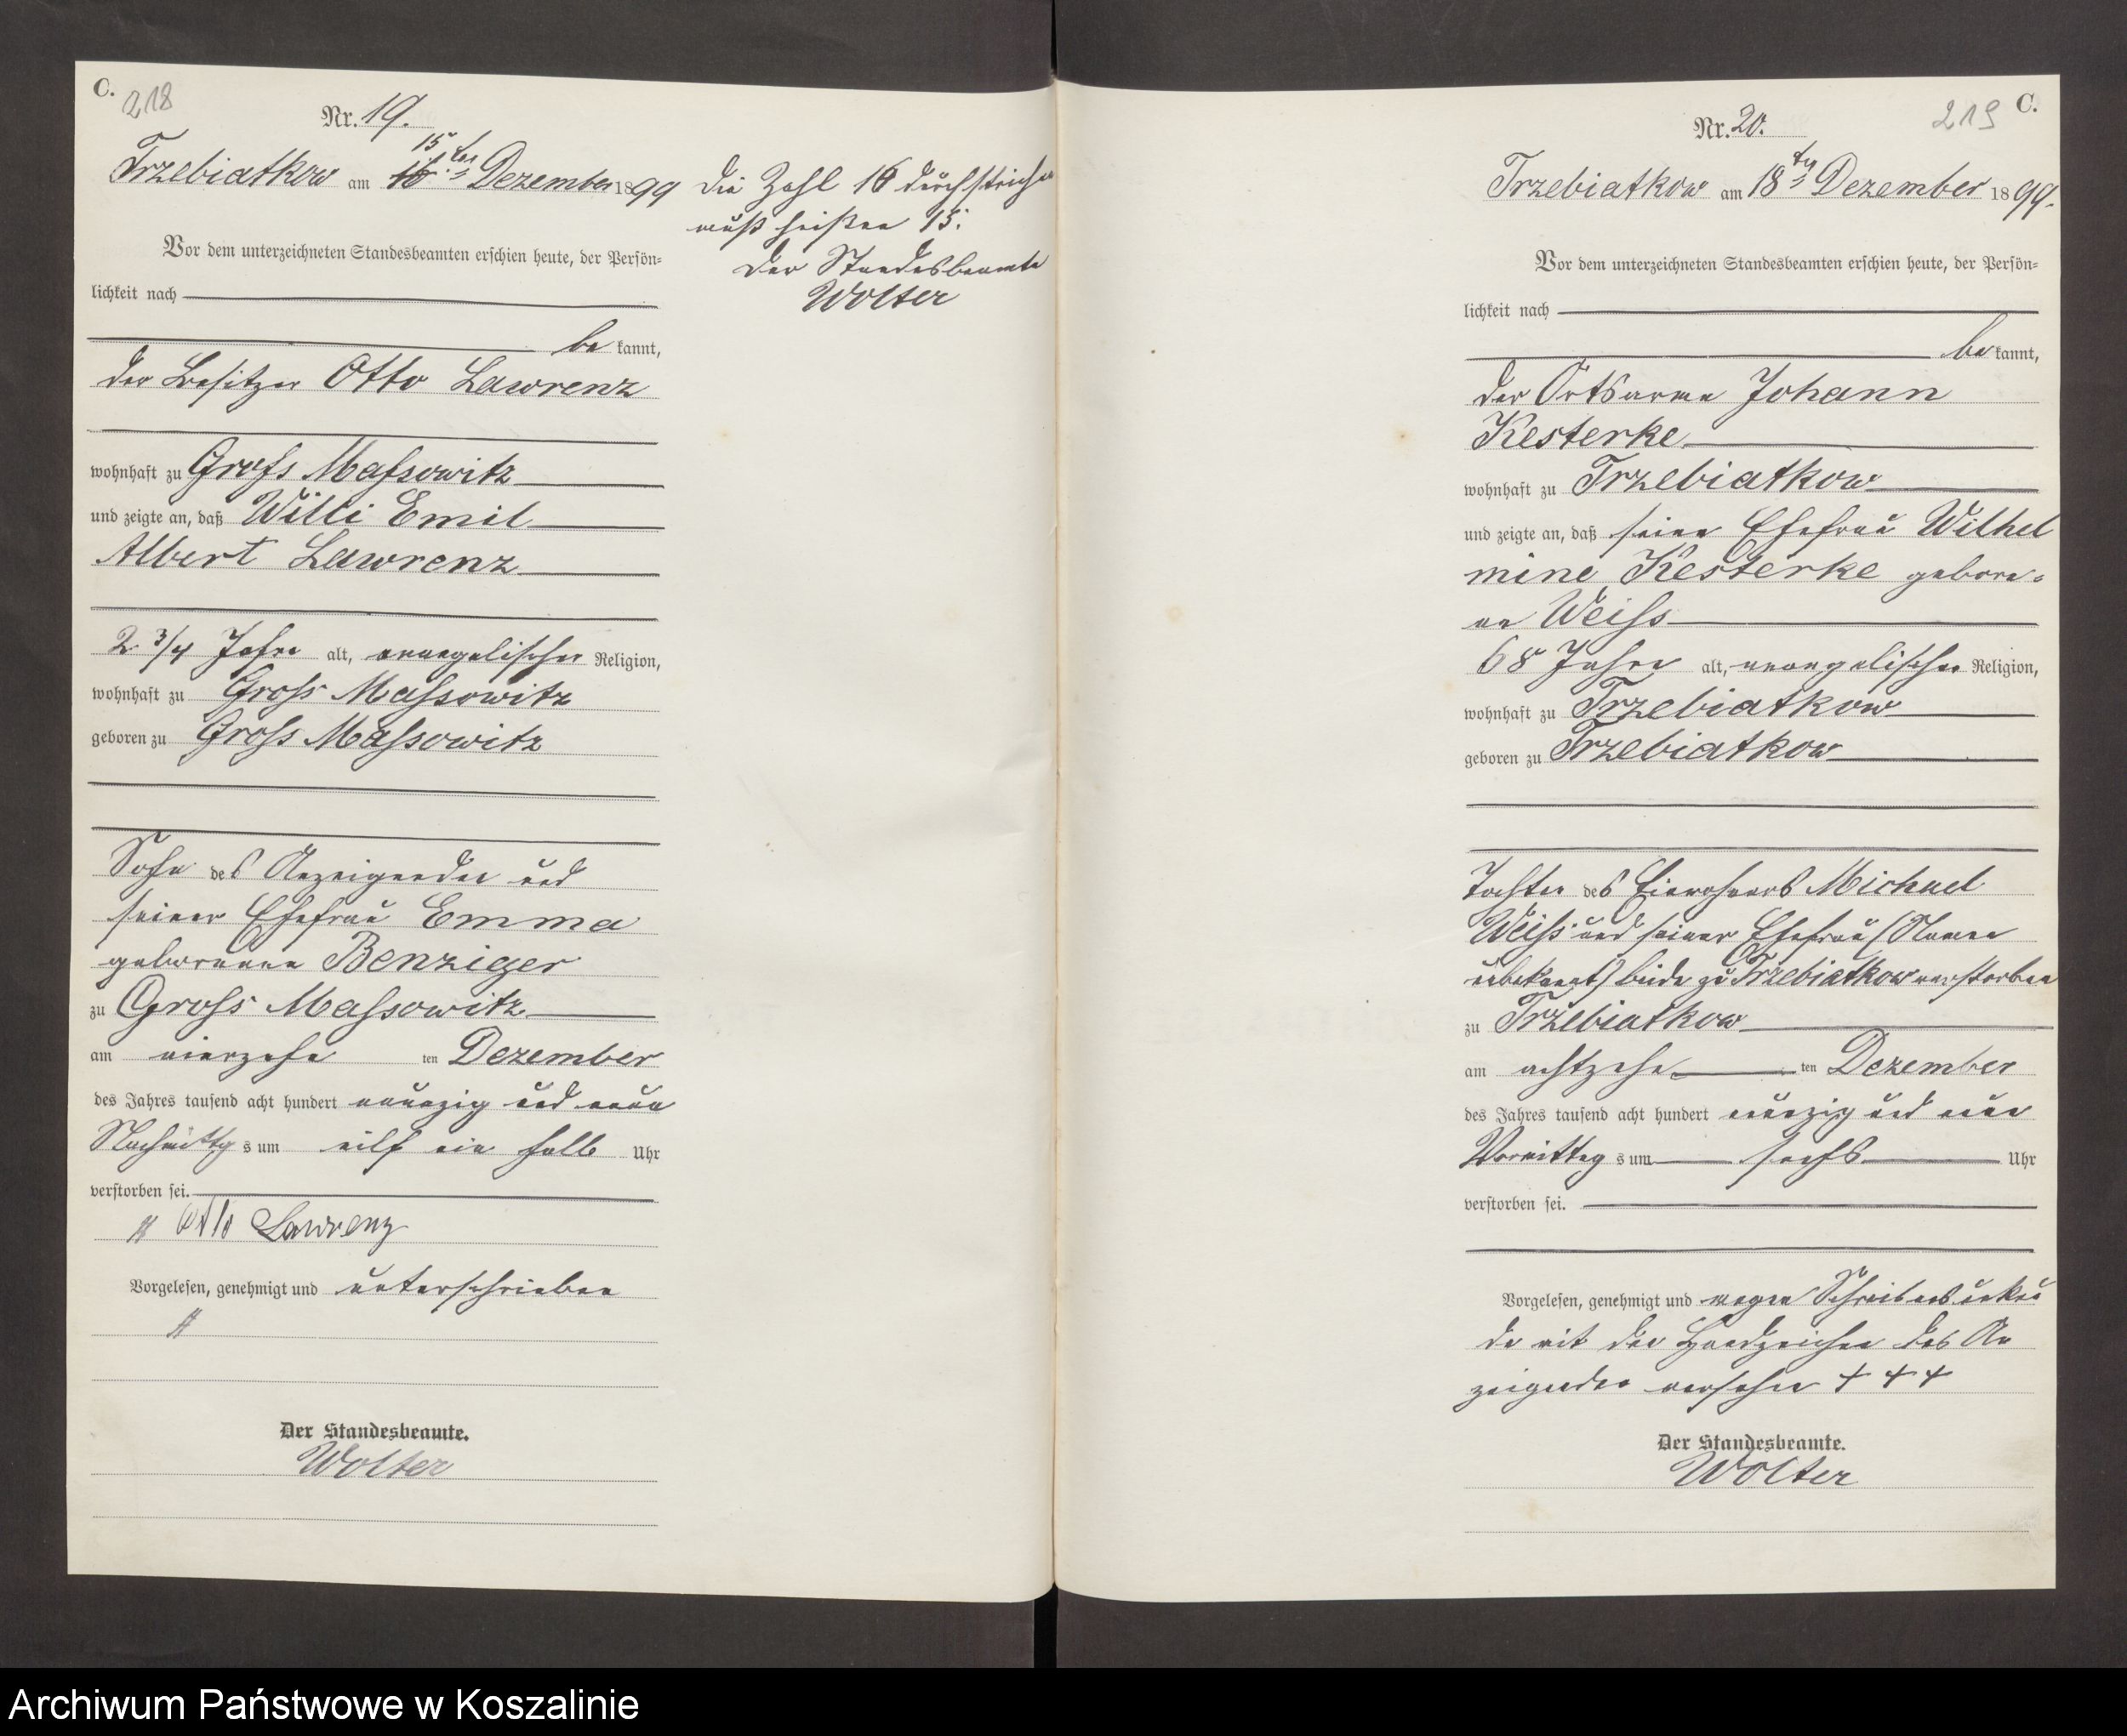 C.
218
Nr. 19.
15
Trzebiatkow am 16ten Dezember 1899
Die Zahl 16 durchstrichen
muß heißen 15.
Der Standesbeamte
Wolter
Vor dem unterzeichneten Standesbeamten erschien heute, der Persön-
lichkeit nach
be kannt,
der Besitzer Otto Lawrenz
wohnhaft zu Gross Massowitz
und zeigte an, daß Willi Emil
Albert Lawrenz
2 3/4 Jahre alt, evangelischer Religion,
wohnhaft zu Gross Massowitz
geboren zu Gross Massowitz
Sohn des Anzeigenden und
seiner Ehefrau Emma
geborenen Benziger
zu Gross Massowitz
am vierzehn ten Dezember
des Jahres tausend acht hundert neunzig und neun
Nachmittags um eilf ein halb Uhr
verstorben sei.
Otto Lawrenz
Vorgelesen, genehmigt und unterschrieben
Der Standesbeamte.
Wolter
219
C.
Nr. 20.
Trzebiatkow am 18ten Dezember 1899.
Vor dem unterzeichneten Standesbeamten erschien heute, der Persön-
lichkeit nach
be kannt,
der Ortsarme Johann
Kesterke
wohnhaft zu Trzebiatkow
und zeigte an, daß seine Ehefrau Wilhel
mine Kesterke gebore-
ne Weiss
68 Jahre alt, evangelischer Religion,
wohnhaft zu Trzebiatkow
geboren zu Trzebiatkow
Tochter des Einwohners Michael
Weiss und seiner Ehefrau (Namen
unbekannt) beide zu Trzebiatkow verstorben
zu Trzebiatkow
am achtzehn ten Dezember
des Jahres tausend acht hundert neunzig und neun
Vormittags um sechs Uhr
verstorben sei.
Vorgelesen, genehmigt und wegen Schreibensunkun
de mit den Handzeichen des An
zeigenden versehen + + +
Der Standesbeamte.
Wolter
Archiwum Państwowe w Koszalinie